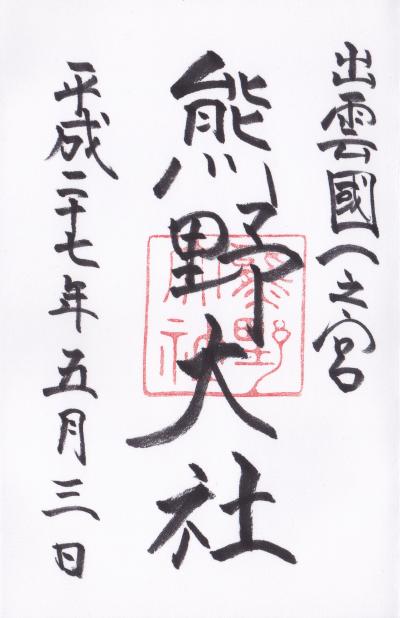 出雲國一之宮
熊野大社
平成二十七年五月三日